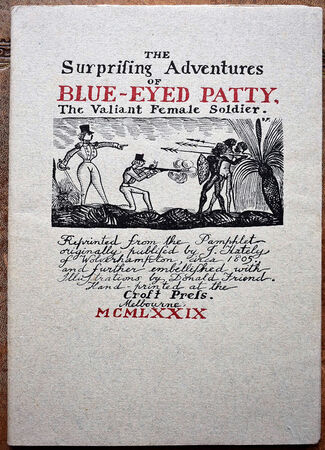 THE
Surpriſing Adventures
OF
BLUE-EYED PATTY,
The Valiant Female Soldier.
D.F.
Reprinted from the Pamphlet
originally publiſed by J. Hately
of Wolverhampton, circa 1805.
and further embelliſhed with
Illuſtrations by Donald Friend.
Hand-printed at the
Croft Preſs.
Melbourne.
MCMLXXIX